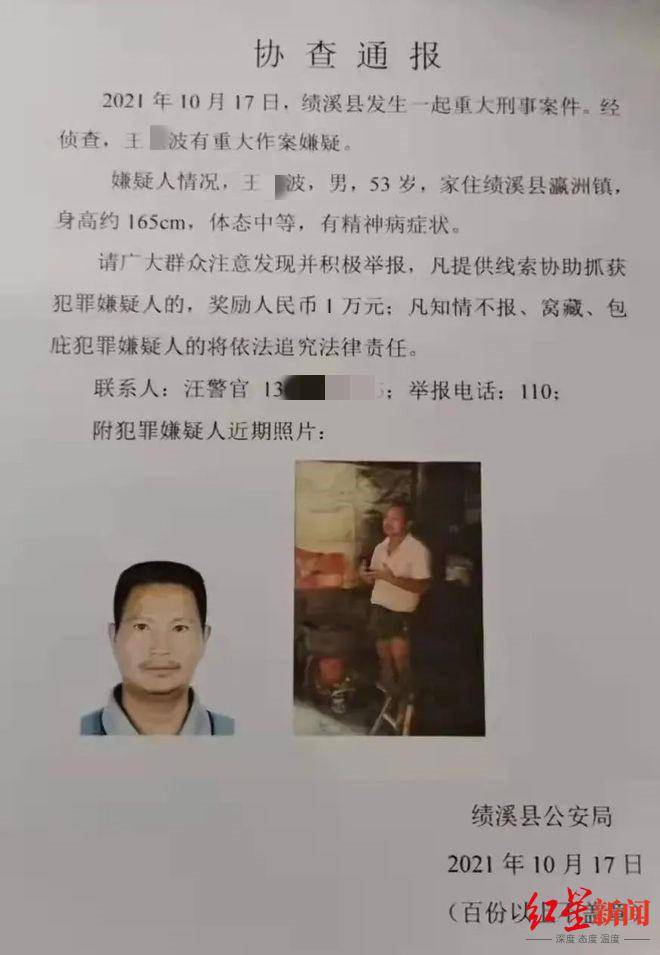 协查通报
2021年10月17日，绩溪县发生一起重大刑事案件。经
侦查，王 波有重大作案嫌疑。
嫌疑人情况，王 波，男，53岁，家住绩溪县瀛洲镇，
身高约165cm，体态中等，有精神病症状。
请广大群众注意发现并积极举报，凡提供线索协助抓获
犯罪嫌疑人的，奖励人民币1万元；凡知情不报、窝藏、包
庇犯罪嫌疑人的将依法追究法律责任。
联系人：汪警官 13 ；举报电话：110；
附犯罪嫌疑人近期照片：
绩溪县公安局
2021年10月17日
（百份以 盖章
红星新闻
深度 态度 温度